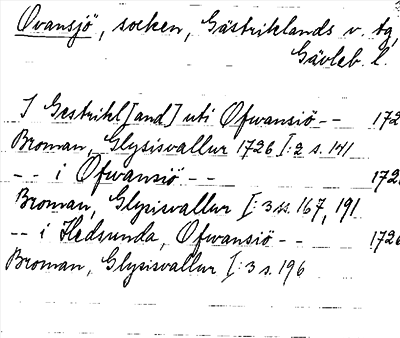 Ovansjö, socken, Gästriklands v. tg,
Gävleb. l.
I Gestrikl[and] uti Ofwansiö -- 172
Broman, Glysisvallur 1726 I: 2 s. 141
-- i Ofwansiö -- 172
Broman, Glysisvallur I: 3 ss. 167, 191
-- i Hedsunda, Ofwansiö -- 1726
Broman, Glysisvallur I: 3 s. 196